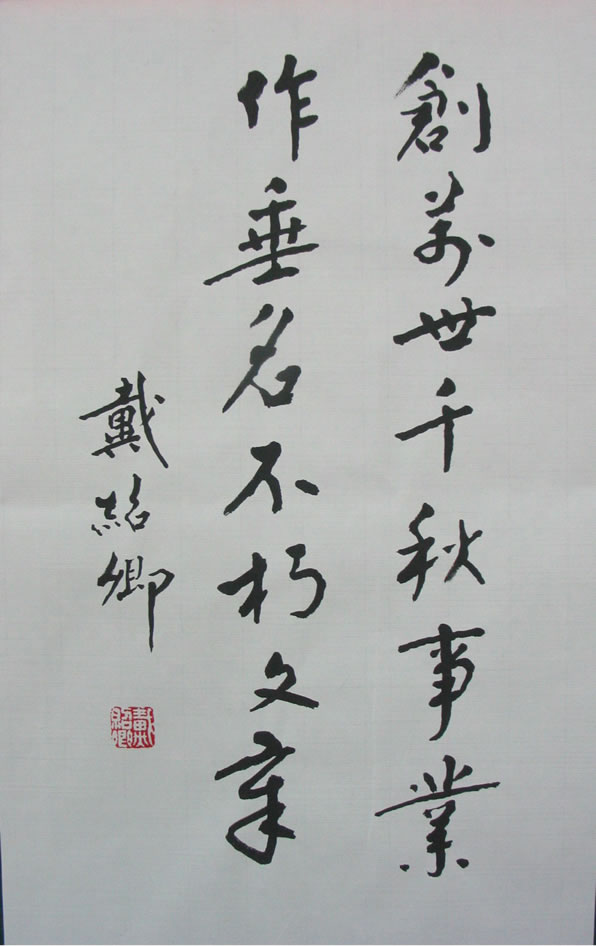 創萬世千秋事業
作垂名不朽文章
戴紹卿
戴紹卿